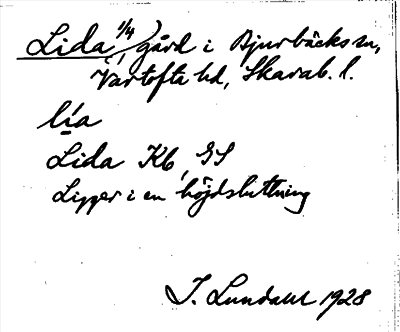 Lida, 1/4 gård i Bjurbäcks sn,
Vartofta hd, Skarab. l.
lia
Lida Kb, GS
Ligger i en höjdsluttning
I. Lundahl 1928